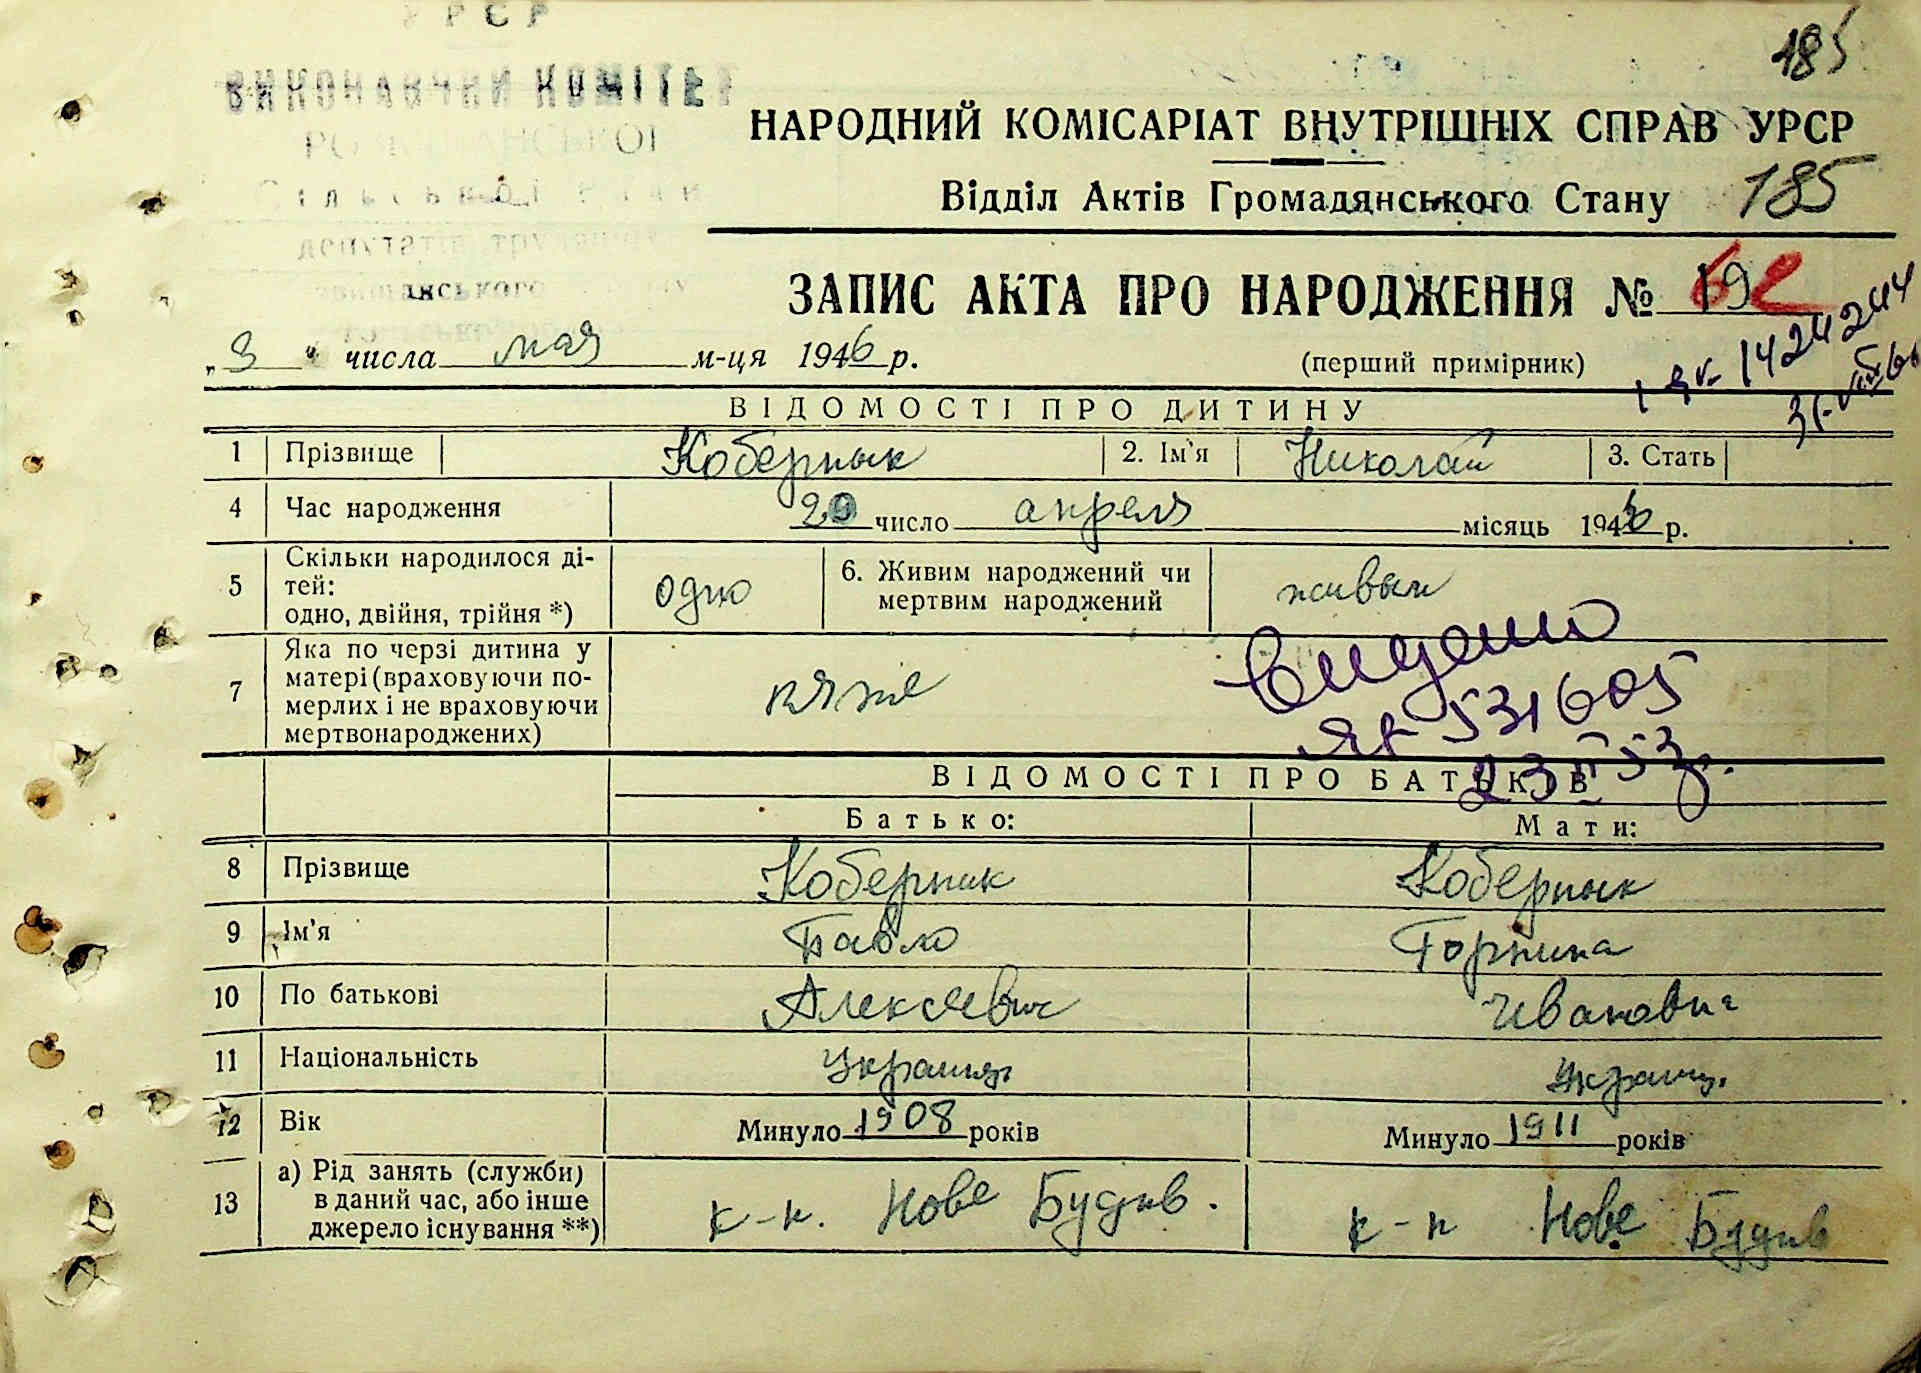 УРСР
ВИКОНАВЧИЙ КОМІТЕТ
185
НАРОДНИЙ КОМІСАРІАТ ВНУТРІШНІХ СПРАВ УРСР
Відділ Актів Громадянського Стану 185
депутатів
ЗАПИС АКТА ПРО НАРОДЖЕННЯ № 19
„3“ числа мая м-ця 1946 р. (перший примірник)
ВІДОМОСТІ ПРО ДИТИНУ
1 Прізвище Коберник 2. Ім'я Николай 3. Стать
4 Час народження 29 число апреля місяць 1946 р.
5 Скільки народилося ді-
тей:
одно, двійня, трійня *) одно 6. Живим народжений чи
мертвим народжений живым
7 Яка по черзі дитина у
матері (враховуючи по-
мерлих і не враховуючи
мертвонароджених) пяте
Видано
ЯЯ 531605
23 II 53 г.
ВІДОМОСТІ ПРО БАТЬКІВ
Батько: Мати:
8 Прізвище Коберник Коберник
9 Ім'я Павло Горпина
10 По батькові Алексеевич Иванович
11 Національність Украинц. Украинц.
12 Вік Минуло 1908 років Минуло 1911 років
13 а) Рід занять (служби)
в даний час, або інше
джерело існування **) к-п. Нове Будив. к-п Нове Будив